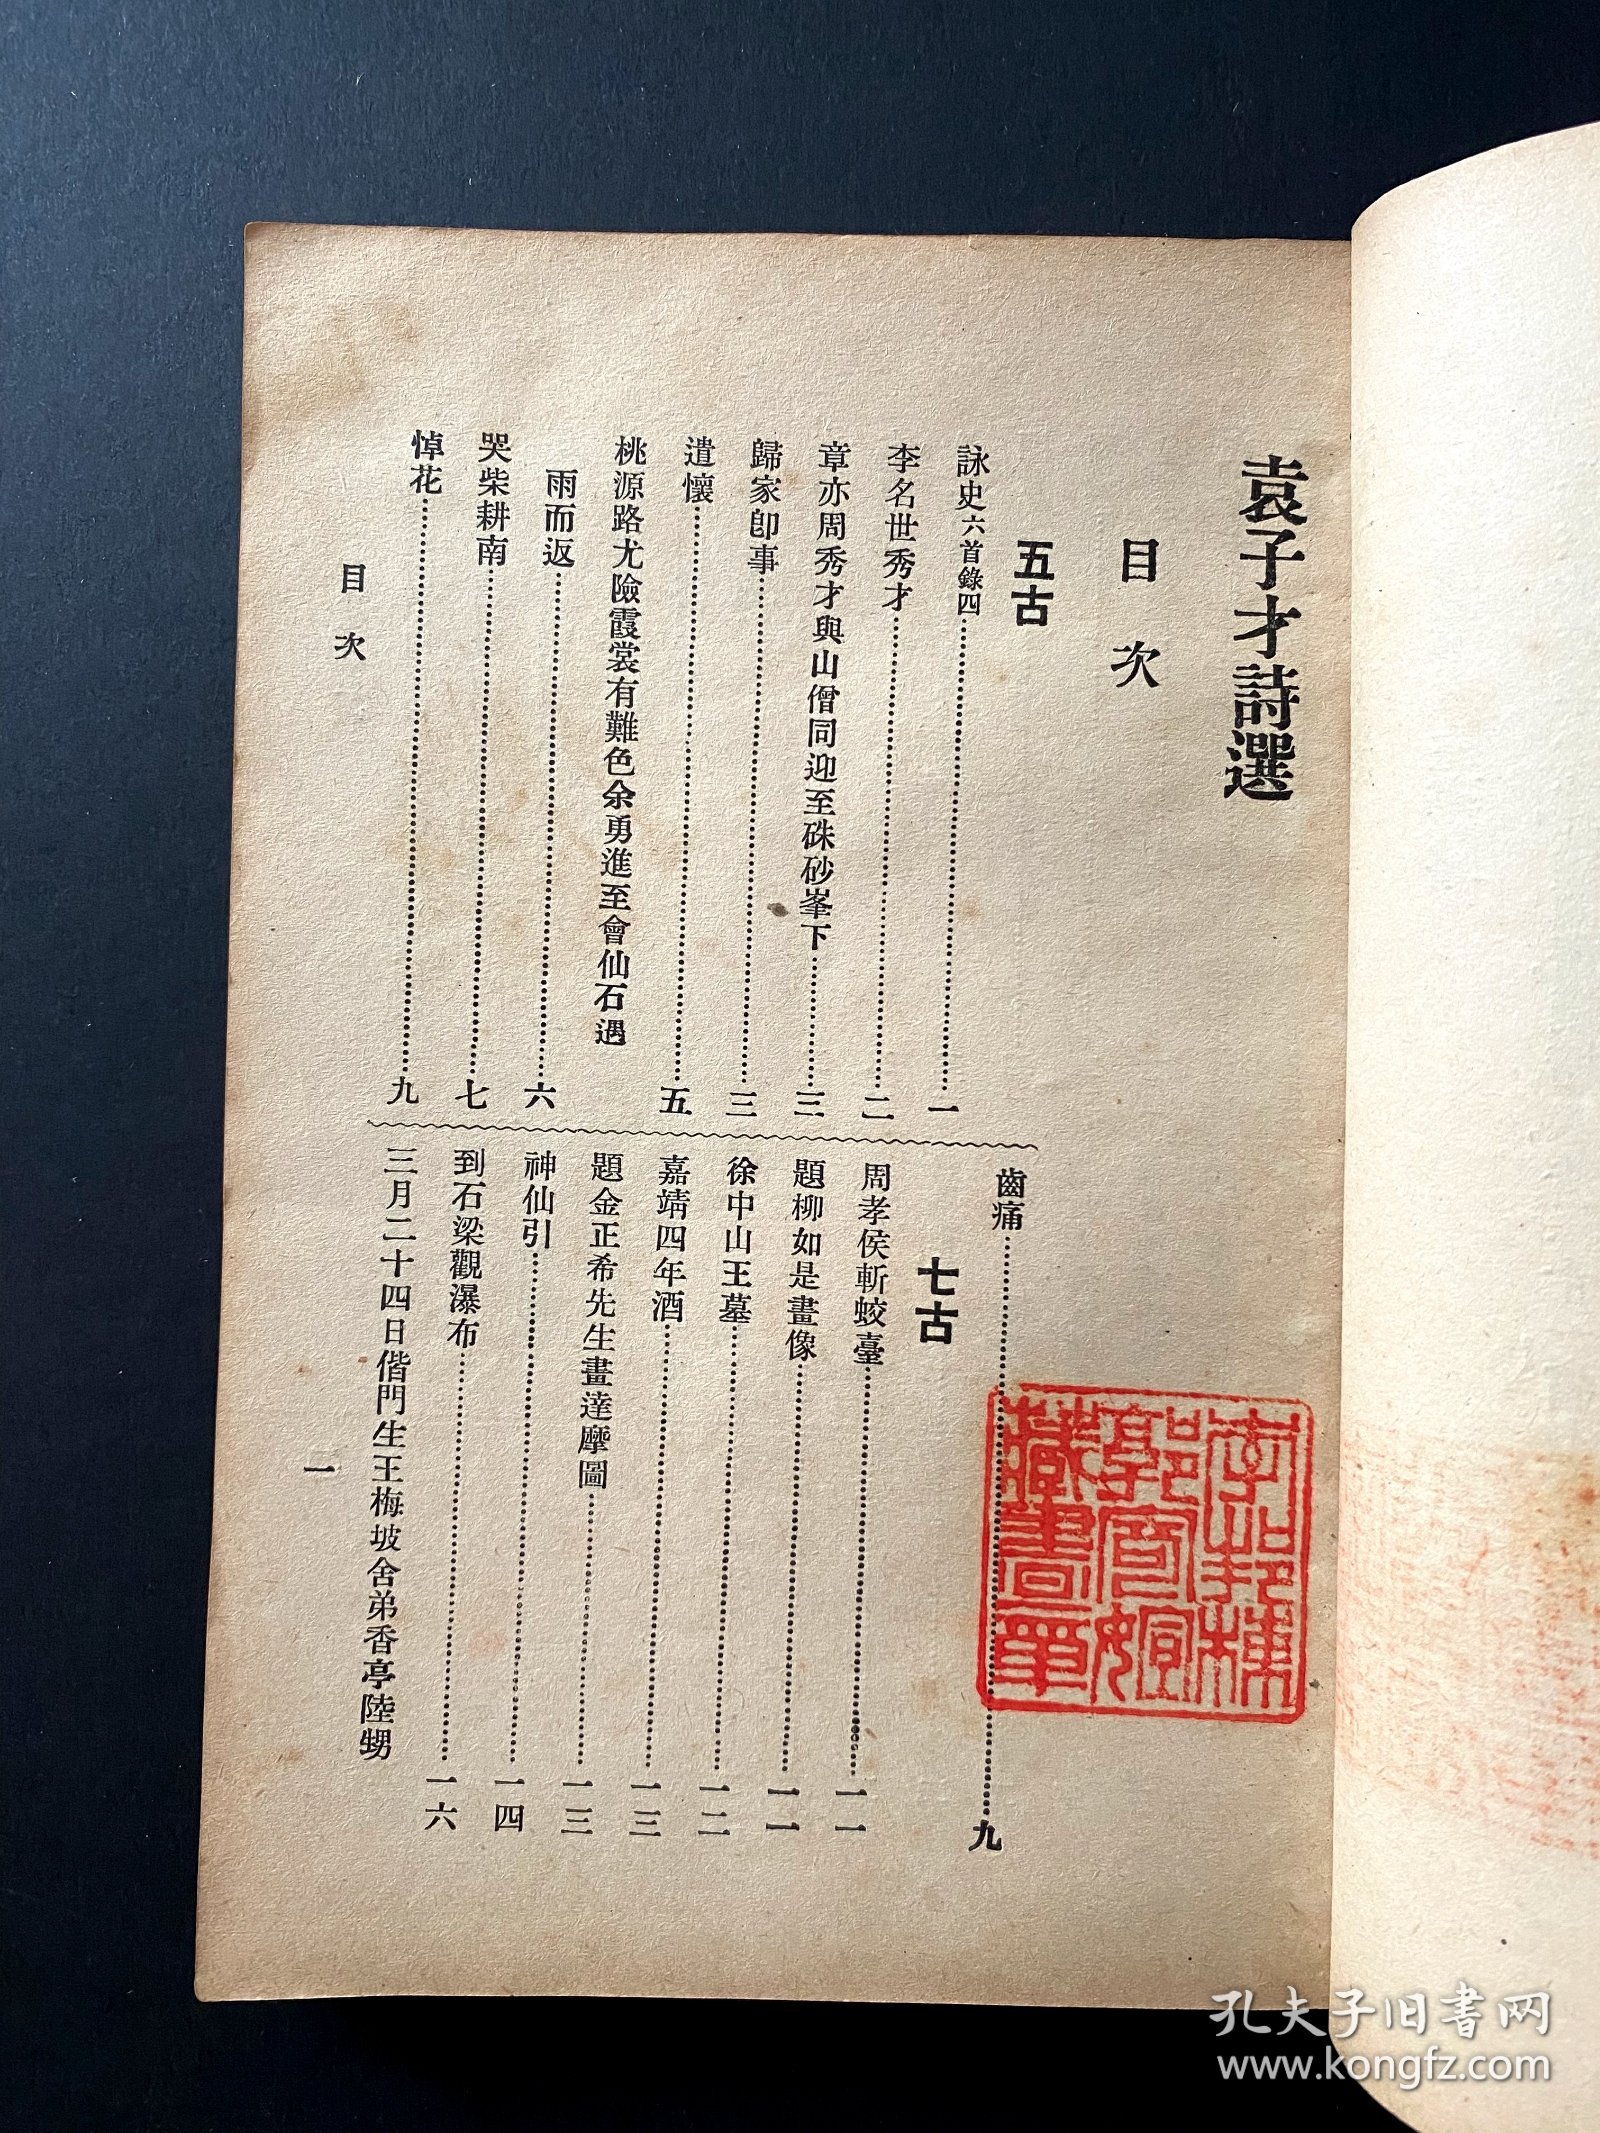 袁子才詩選
目次
五古
詠史六首錄四……一
李名世秀才……二
章亦周秀才與山僧同迎至硃砂峯下……三
歸家卽事……三
遣懷……五
桃源路尤險霞裳有難色余勇進至會仙石遇
雨而返……六
哭柴耕南……七
悼花……九
齒痛……九
七古
周孝侯斬蛟臺……一一
題柳如是畫像……一一
徐中山王墓……一二
嘉靖四年酒……一三
題金正希先生畫達摩圖……一三
神仙引……一四
到石梁觀瀑布……一六
三月二十四日偕門生王梅坡舍弟香亭陸甥
目次
一
藏書章
孔夫子旧书网
www.kongfz.com